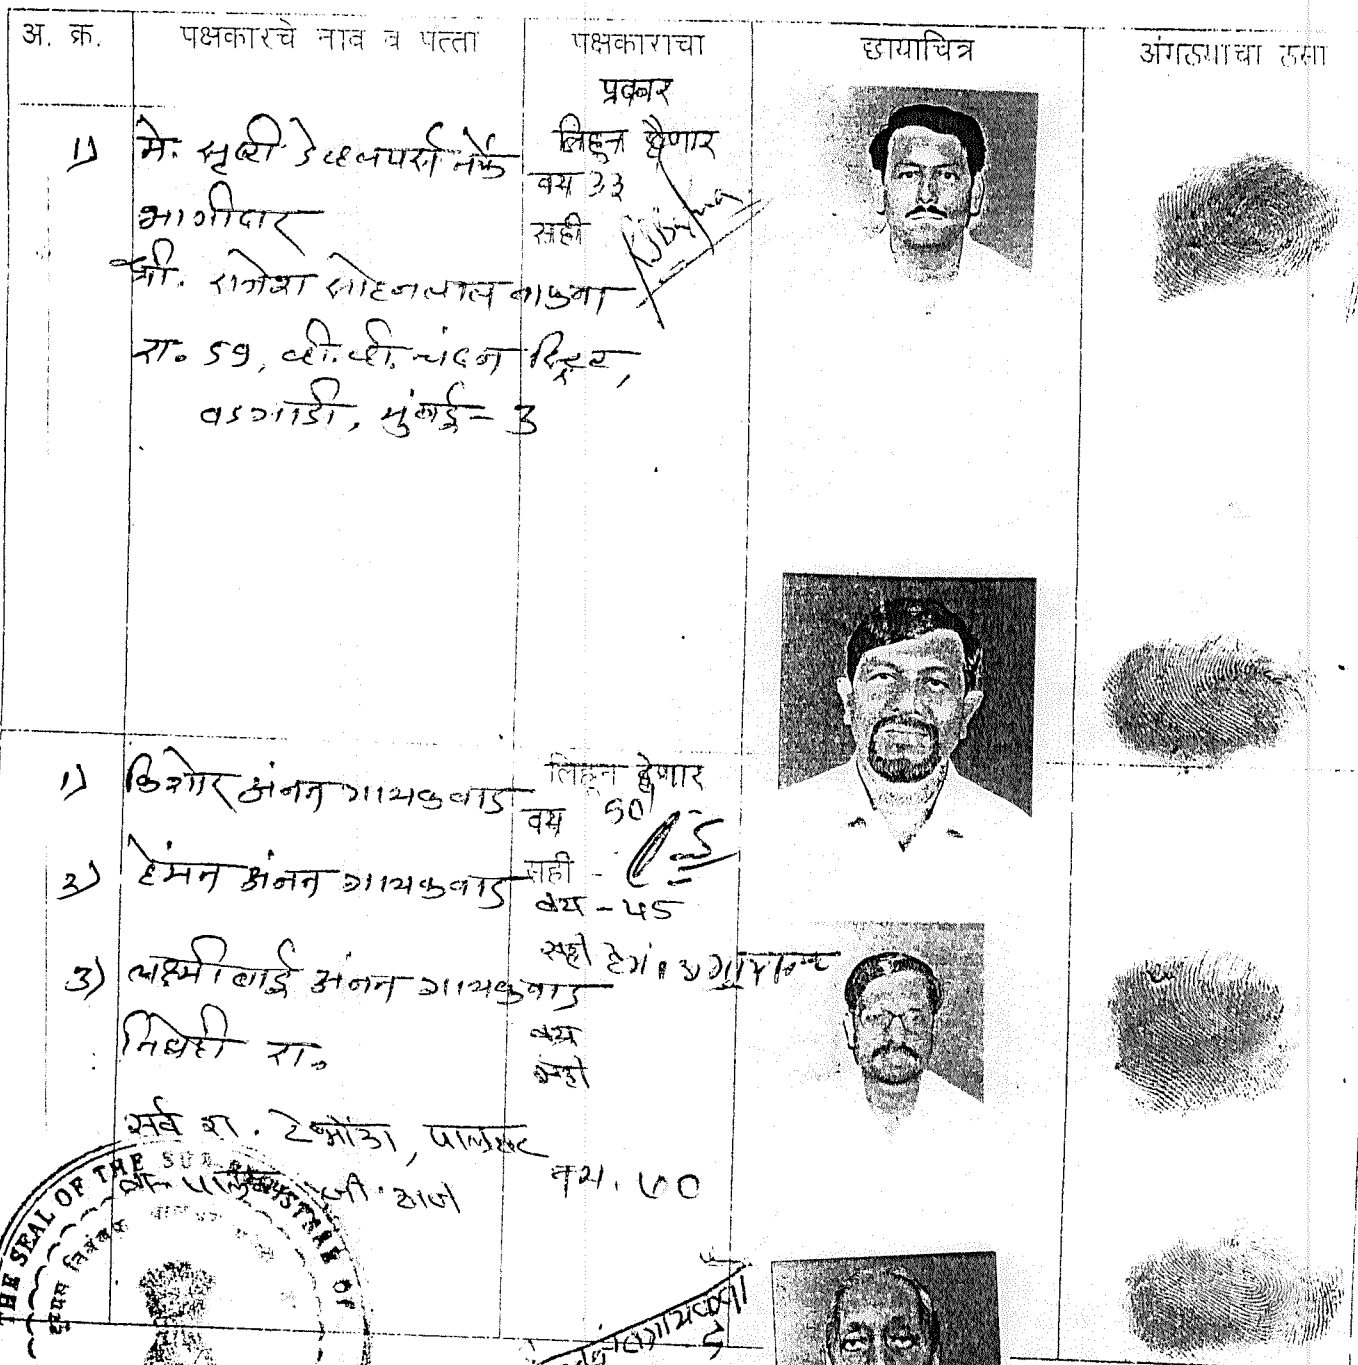 अ. क्र.
पक्षकारचे नाव व पत्ता
पक्षकाराचा
प्रकार
छायाचित्र
अंगठ्याचा ठसा
1)
मे. सृष्टी डेव्हलपर्स तर्फे
भागीदार
श्री. राजेश सोहनलाल बाफना
रा. 59, व्ही.व्ही. चंदन स्ट्रिट,
वडगादी, मुंबई - 3
लिहून घेणार
वय 33
सही
1) किशोर अंनत गायकवाड
2) हेमंत अंनत गायकवाड
3) लक्ष्मीबाई अंनत गायकवाड
रा.
सर्व रा. टेंभोडा, पालघर
लिहून देणार
वय 50
सही -
वय - 45
सही
वय
सही
वय. 70
THE SEAL OF THE SUB REGISTRAR OF
दुय्यम निबंधक